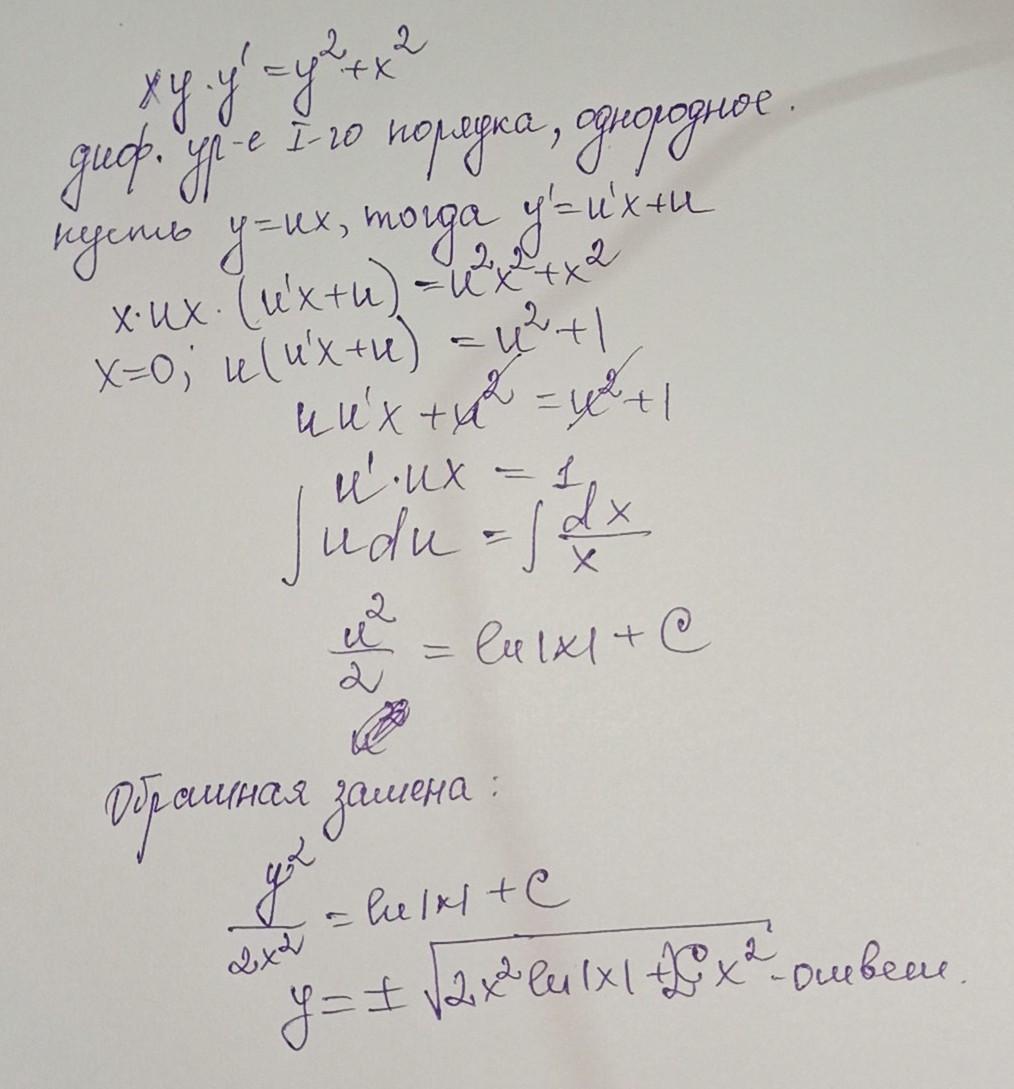 xy·y' = y² + x²
диф. ур-е I-го порядка, однородное.
пусть y=ux, тогда y'=u'x+u
x·ux·(u'x+u) = u²x²+x²
x=0; u(u'x+u) = u²+1
uu'x + u² = u²+1
u'·ux = 1
∫udu = ∫dx/x
u²/2 = ln|x| + C
Обратная замена:
y²/2x² = ln|x| + C
y = ± √(2x² ln|x| + 2Cx²) - ответ.